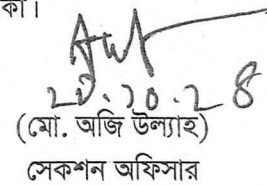 কা।
২০.১০.২৪
(মো. অজি উল্যাহ)
সেকশন অফিসার